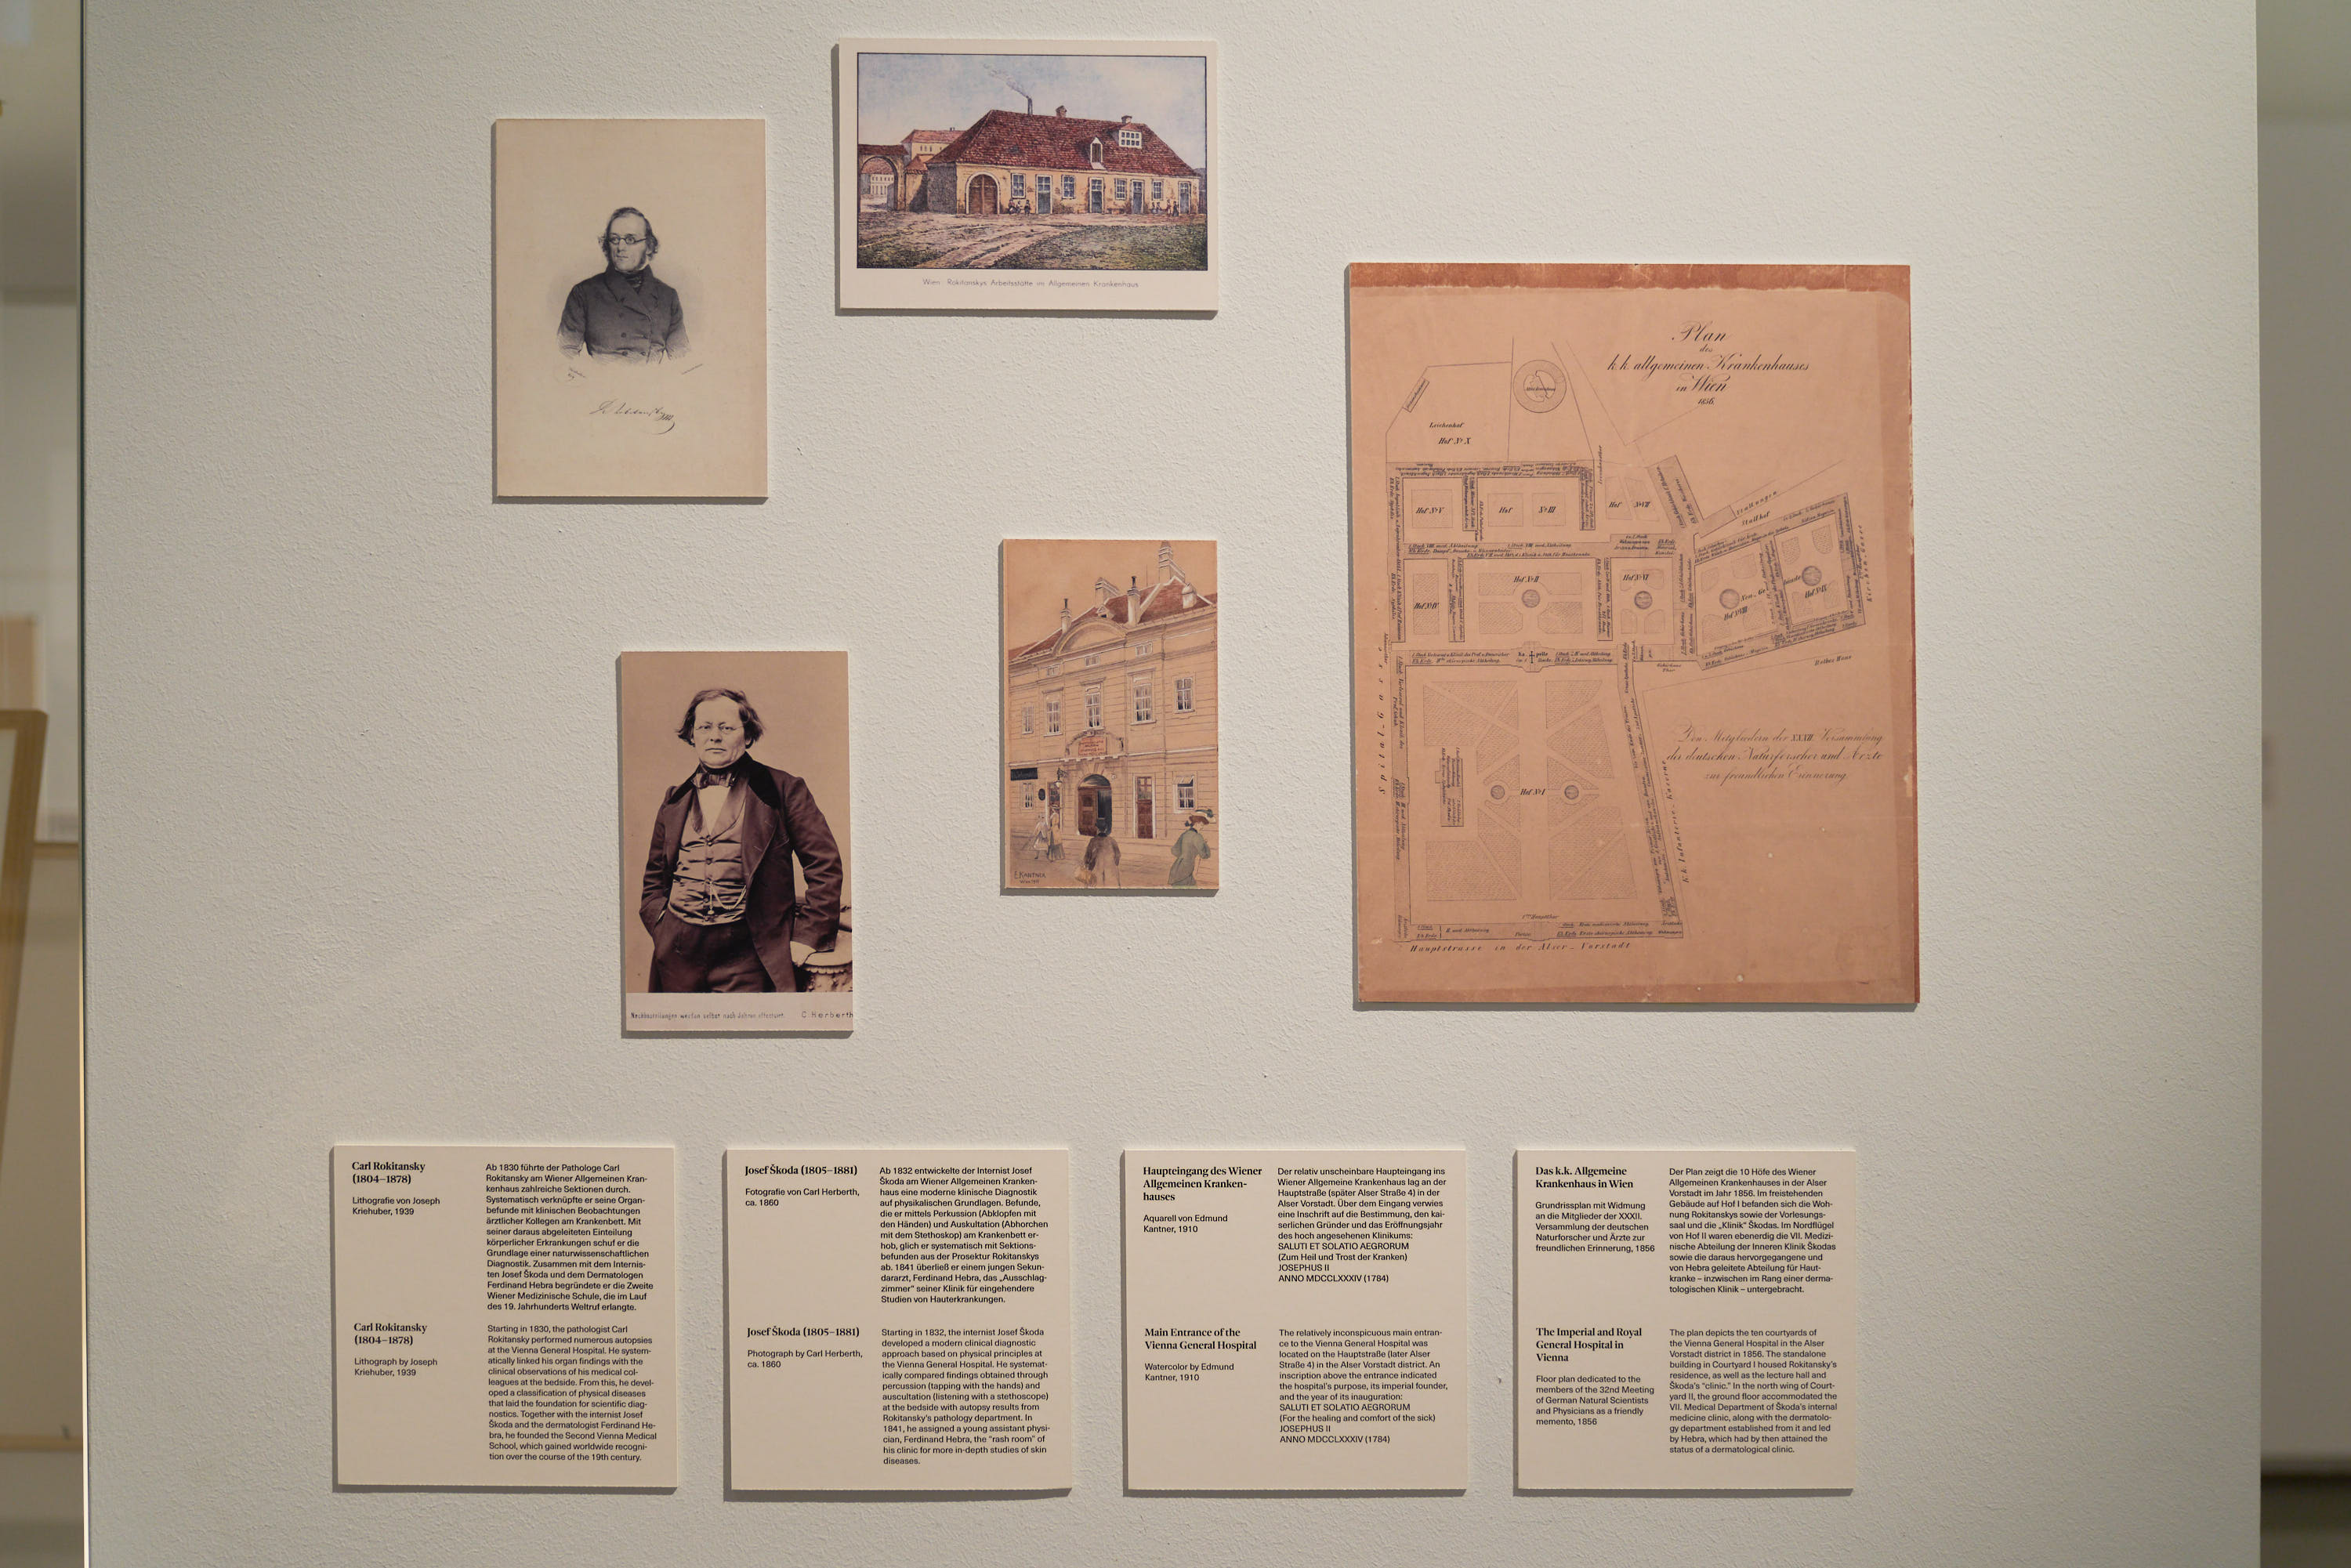 Wien: Rokitanskys Arbeitsstätte im Allgemeinen Krankenhaus
Plan
des
k.k. allgemeinen Krankenhauses
in Wien
1856.
Leichenhof
Hof No X
Hof No V
Hof No III
Hof No VII
Stallungen
Stallhof
Hof No IV
Hof No II
Hof No VI
Hof No VIII
Hof No IX
Rothes Haus
Spital-Gasse
Den Mitgliedern der XXXII. Versammlung
der deutschen Naturforscher und Ärzte
zur freundlichen Erinnerung.
Hof No I
k.k. Infanterie-Kaserne
Hauptstrasse in der Alser-Vorstadt
E. KANTNER
Nachbestellungen werden selbst nach Jahren effectuirt.
C. Herberth
Carl Rokitansky
(1804–1878)
Lithografie von Joseph
Kriehuber, 1939
Ab 1830 führte der Pathologe Carl
Rokitansky am Wiener Allgemeinen Kran-
kenhaus zahlreiche Sektionen durch.
Systematisch verknüpfte er seine Organ-
befunde mit klinischen Beobachtungen
ärztlicher Kollegen am Krankenbett. Mit
seiner daraus abgeleiteten Einteilung
körperlicher Erkrankungen schuf er die
Grundlage einer naturwissenschaftlichen
Diagnostik. Zusammen mit dem Internis-
ten Josef Škoda und dem Dermatologen
Ferdinand Hebra begründete er die Zweite
Wiener Medizinische Schule, die im Lauf
des 19. Jahrhunderts Weltruf erlangte.
Carl Rokitansky
(1804–1878)
Lithograph by Joseph
Kriehuber, 1939
Starting in 1830, the pathologist Carl
Rokitansky performed numerous autopsies
at the Vienna General Hospital. He system-
atically linked his organ findings with the
clinical observations of his medical col-
leagues at the bedside. From this, he devel-
oped a classification of physical diseases
that laid the foundation for scientific diag-
nostics. Together with the internist Josef
Škoda and the dermatologist Ferdinand He-
bra, he founded the Second Vienna Medical
School, which gained worldwide recogni-
tion over the course of the 19th century.
Josef Škoda (1805–1881)
Fotografie von Carl Herberth,
ca. 1860
Ab 1832 entwickelte der Internist Josef
Škoda am Wiener Allgemeinen Kranken-
haus eine moderne klinische Diagnostik
auf physikalischen Grundlagen. Befunde,
die er mittels Perkussion (Abklopfen mit
den Händen) und Auskultation (Abhorchen
mit dem Stethoskop) am Krankenbett er-
hob, glich er systematisch mit Sektions-
befunden aus der Prosektur Rokitanskys
ab. 1841 überließ er einem jungen Sekun-
dararzt, Ferdinand Hebra, das „Ausschlag-
zimmer“ seiner Klinik für eingehendere
Studien von Hauterkrankungen.
Josef Škoda (1805–1881)
Photograph by Carl Herberth,
ca. 1860
Starting in 1832, the internist Josef Škoda
developed a modern clinical diagnostic
approach based on physical principles at
the Vienna General Hospital. He systemat-
ically compared findings obtained through
percussion (tapping with the hands) and
auscultation (listening with a stethoscope)
at the bedside with autopsy results from
Rokitansky's pathology department. In
1841, he assigned a young assistant physi-
cian, Ferdinand Hebra, the "rash room" of
his clinic for more in-depth studies of skin
diseases.
Haupteingang des Wiener
Allgemeinen Kranken-
hauses
Aquarell von Edmund
Kantner, 1910
Der relativ unscheinbare Haupteingang ins
Wiener Allgemeine Krankenhaus lag an der
Hauptstraße (später Alser Straße 4) in der
Alser Vorstadt. Über dem Eingang verwies
eine Inschrift auf die Bestimmung, den kai-
serlichen Gründer und das Eröffnungsjahr
des hoch angesehenen Klinikums:
SALUTI ET SOLATIO AEGRORUM
(Zum Heil und Trost der Kranken)
JOSEPHUS II
ANNO MDCCLXXXIV (1784)
Main Entrance of the
Vienna General Hospital
Watercolor by Edmund
Kantner, 1910
The relatively inconspicuous main entran-
ce to the Vienna General Hospital was
located on the Hauptstraße (later Alser
Straße 4) in the Alser Vorstadt district. An
inscription above the entrance indicated
the hospital's purpose, its imperial founder,
and the year of its inauguration:
SALUTI ET SOLATIO AEGRORUM
(For the healing and comfort of the sick)
JOSEPHUS II
ANNO MDCCLXXXIV (1784)
Das k.k. Allgemeine
Krankenhaus in Wien
Grundrissplan mit Widmung
an die Mitglieder der XXXII.
Versammlung der deutschen
Naturforscher und Ärzte zur
freundlichen Erinnerung, 1856
Der Plan zeigt die 10 Höfe des Wiener
Allgemeinen Krankenhauses in der Alser
Vorstadt im Jahr 1856. Im freistehenden
Gebäude auf Hof I befanden sich die Woh-
nung Rokitanskys sowie der Vorlesungs-
saal und die „Klinik“ Škodas. Im Nordflügel
von Hof II waren ebenerdig die VII. Medizi-
nische Abteilung der Inneren Klinik Škodas
sowie die daraus hervorgegangene und
von Hebra geleitete Abteilung für Haut-
kranke – inzwischen im Rang einer derma-
tologischen Klinik – untergebracht.
The Imperial and Royal
General Hospital in
Vienna
Floor plan dedicated to the
members of the 32nd Meeting
of German Natural Scientists
and Physicians as a friendly
memento, 1856
The plan depicts the ten courtyards of
the Vienna General Hospital in the Alser
Vorstadt district in 1856. The standalone
building in Courtyard I housed Rokitansky's
residence, as well as the lecture hall and
Škoda's "clinic." In the north wing of Court-
yard II, the ground floor accommodated the
VII. Medical Department of Škoda's internal
medicine clinic, along with the dermatolo-
gy department established from it and led
by Hebra, which had by then attained the
status of a dermatological clinic.